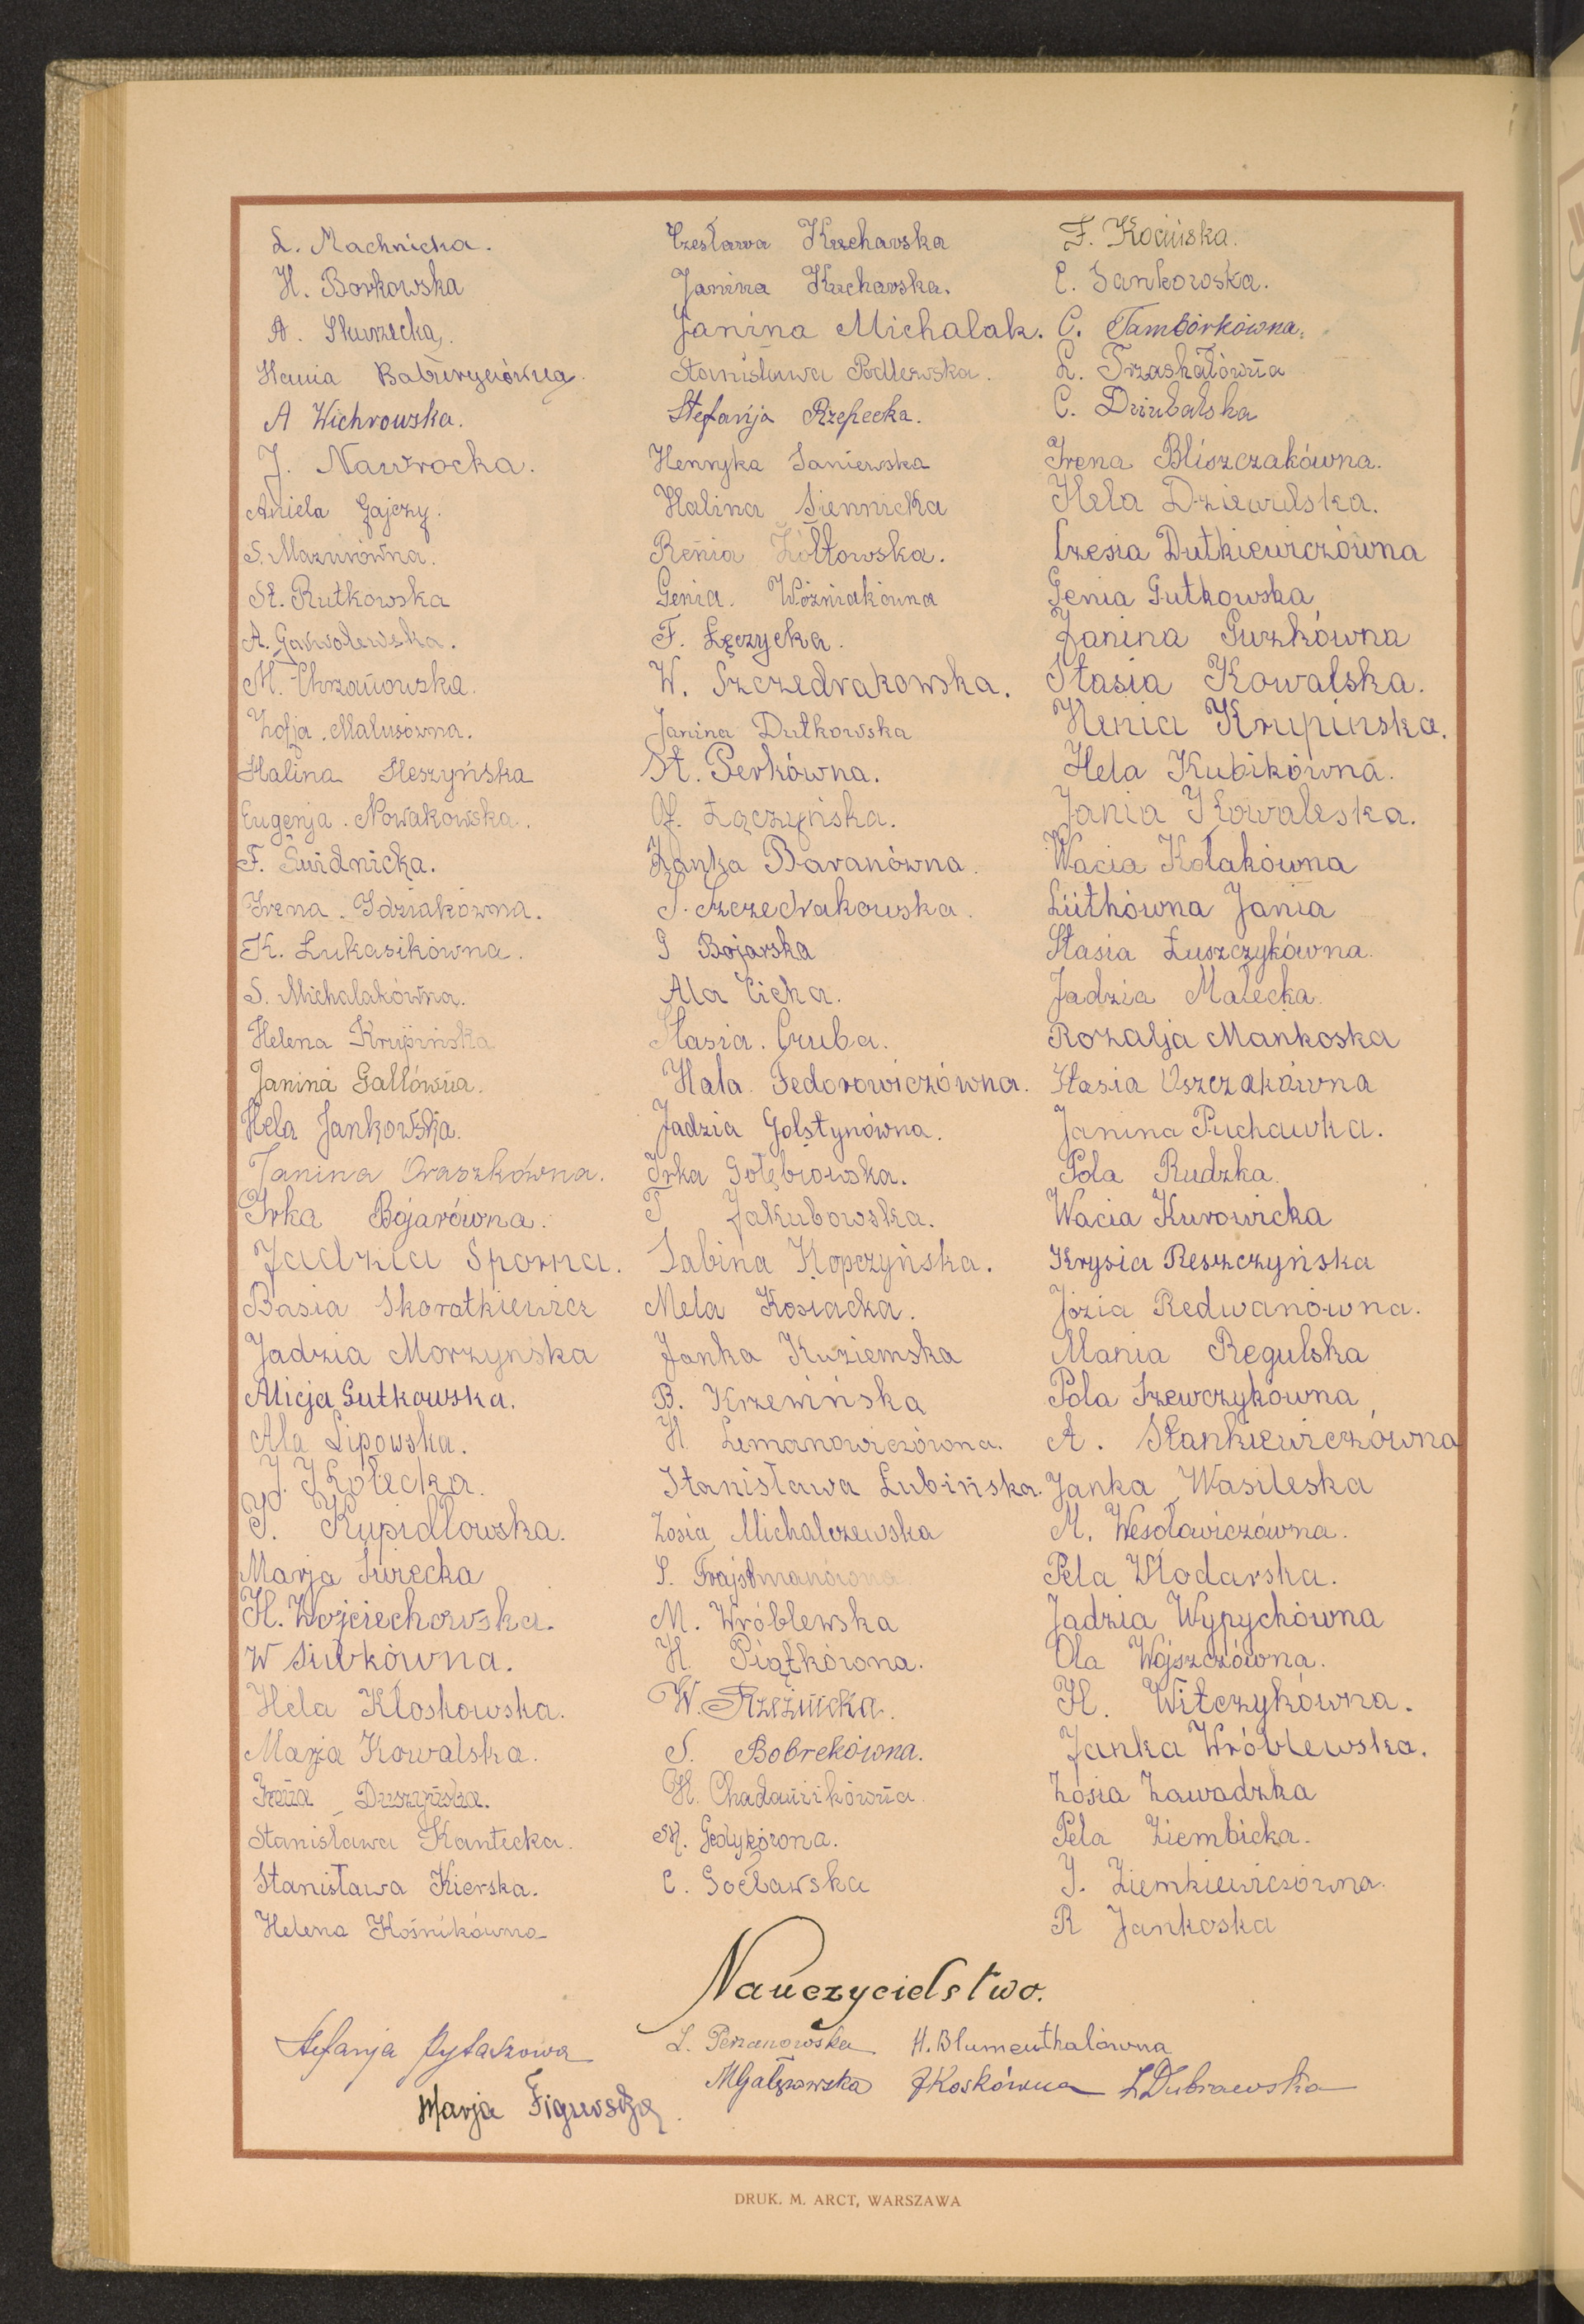 L. Machnicka.
H. Borkowska
A. Skurzecka.
Hania Baturycówna.
A Wichrowska.
J. Nawrocka.
Aniela Gajczy.
S. Mazurówna.
St. Rutkowska
A. Gawolewska.
M. Chrzanowska.
Zofja Matusówna.
Halina Heszyńska
Eugenja Nowakowska.
F. Świdnicka.
Irena Idziakówna.
K. Łukasikówna.
S. Michalakówna.
Helena Krupińska
Janina Gallówna.
Hela Jankowska.
Janina Oraszkówna.
Irka Bojarówna.
Jadzia Sporna.
Basia Skoratkiewicz
Jadzia Morzyńska
Alicja Gutkowska.
Ala Lipowska.
J. Kołecka.
J. Kupidłowska.
Marja Świrecka
H. Wojciechowska.
W Siwkówna.
Hela Kłoskowska.
Marja Kowalska.
Irena Duszyńska.
Stanisława Kantecka.
Stanisława Kierska.
Helena Kośnikówna
Czesława Kucharska
Janina Kucharska.
Janina Michalak.
Stanisława Podlewska.
Stefanja Rzepecka.
Henryka Saniewska
Halina Siennicka
Renia Żółtowska.
Genia Woźniakówna
F. Łęczycka.
W. Szczedrakowska.
Janina Dutkowska
St. Perkówna.
Of. Łączyńska.
Janka Baranówna.
S. Szczedrakowska.
G Bojarska
Ala Cicka.
Stasia Gruba.
Hala Fedorowiczówna.
Jadzia Golstynówna.
Irka Gołębiowska.
T Jakubowska.
Sabina Kopczyńska.
Mela Kosiacka.
Janka Kuziemska
B. Krzewińska
H Lemanowiczówna.
Stanisława Lubińska.
Zosia Michalczewska
S. Frajstmanówna
M. Wróblewska
H. Piątkówna.
W. Rzeźnicka.
S. Bobrekówna.
H. Chadaunikówna.
M. Gedykówna.
C. Gocławska
F. Kocińska.
C. Sankowska.
C. Tambórkówna.
L. Trzaskałówna
C. Dziubalska
Irena Bliszczakówna.
Hela Dziewulska.
Czesia Dutkiewiczówna
Genia Gutkowska
Janina Guzkówna
Stasia Kowalska.
Henia Krupinska.
Hela Kubikówna.
Jania Kowaleska.
Wacia Kołakówna
Lüthówna Jania
Stasia Łuszczykówna.
Jadzia Małecka.
Rozalja Mankoska
Stasia Oszczakówna
Janina Puchawka.
Pola Rudzka.
Wacia Kurowicka
Krysia Reszczyńska
Józia Redwanówna.
Mania Regulska
Pola Szewczykówna
A. Stankiewiczówna
Janka Wasileska
M. Wesoławiczówna.
Pela Włodarska.
Jadzia Wypychówna
Ola Wójszczówna.
H. Witczykówna.
Janka Wróblewska.
Zosia Zawadzka
Pela Ziembicka.
J. Ziemkiewiczówna.
R Jankoska
Nauczycielstwo.
Stefanja Pytaszowa
L. Perzanowska H. Blumenthalówna
MGałęzowska JKoskówna LDubrawska
Marja Figurska
DRUK. M. ARCT, WARSZAWA